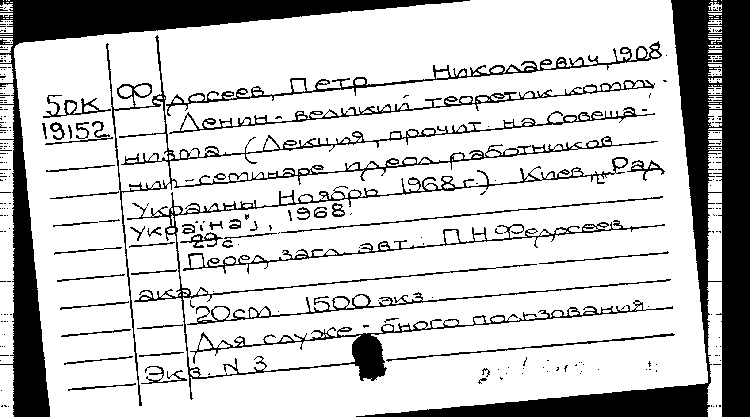 Федосеев, Петр Николаевич, 1908
5ОК
19152
Ленин - великий теоретик комму-
низма. (Лекция, прочит. на Совеща-
нии-семинаре идеол. работников
Украины Ноябрь 1968 г.) Киев, "Рад
Україна", 1968.
29 с.
Перед загл. авт.: П.Н Федосеев,
акад.
20 см 1500 экз.
Для служе-бного пользования.
Экз. N 3